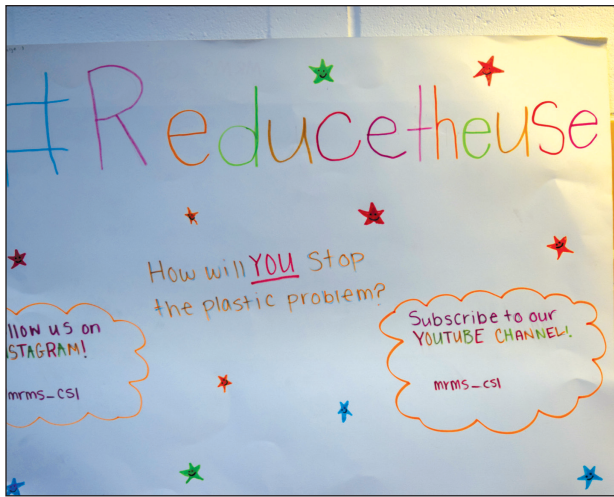 #Reducetheuse
How will YOU Stop
the plastic problem?
llow us on
STAGRAM!
mrms_CSI
Subscribe to our
YOUTUBE CHANNEL!
mrms_CSI